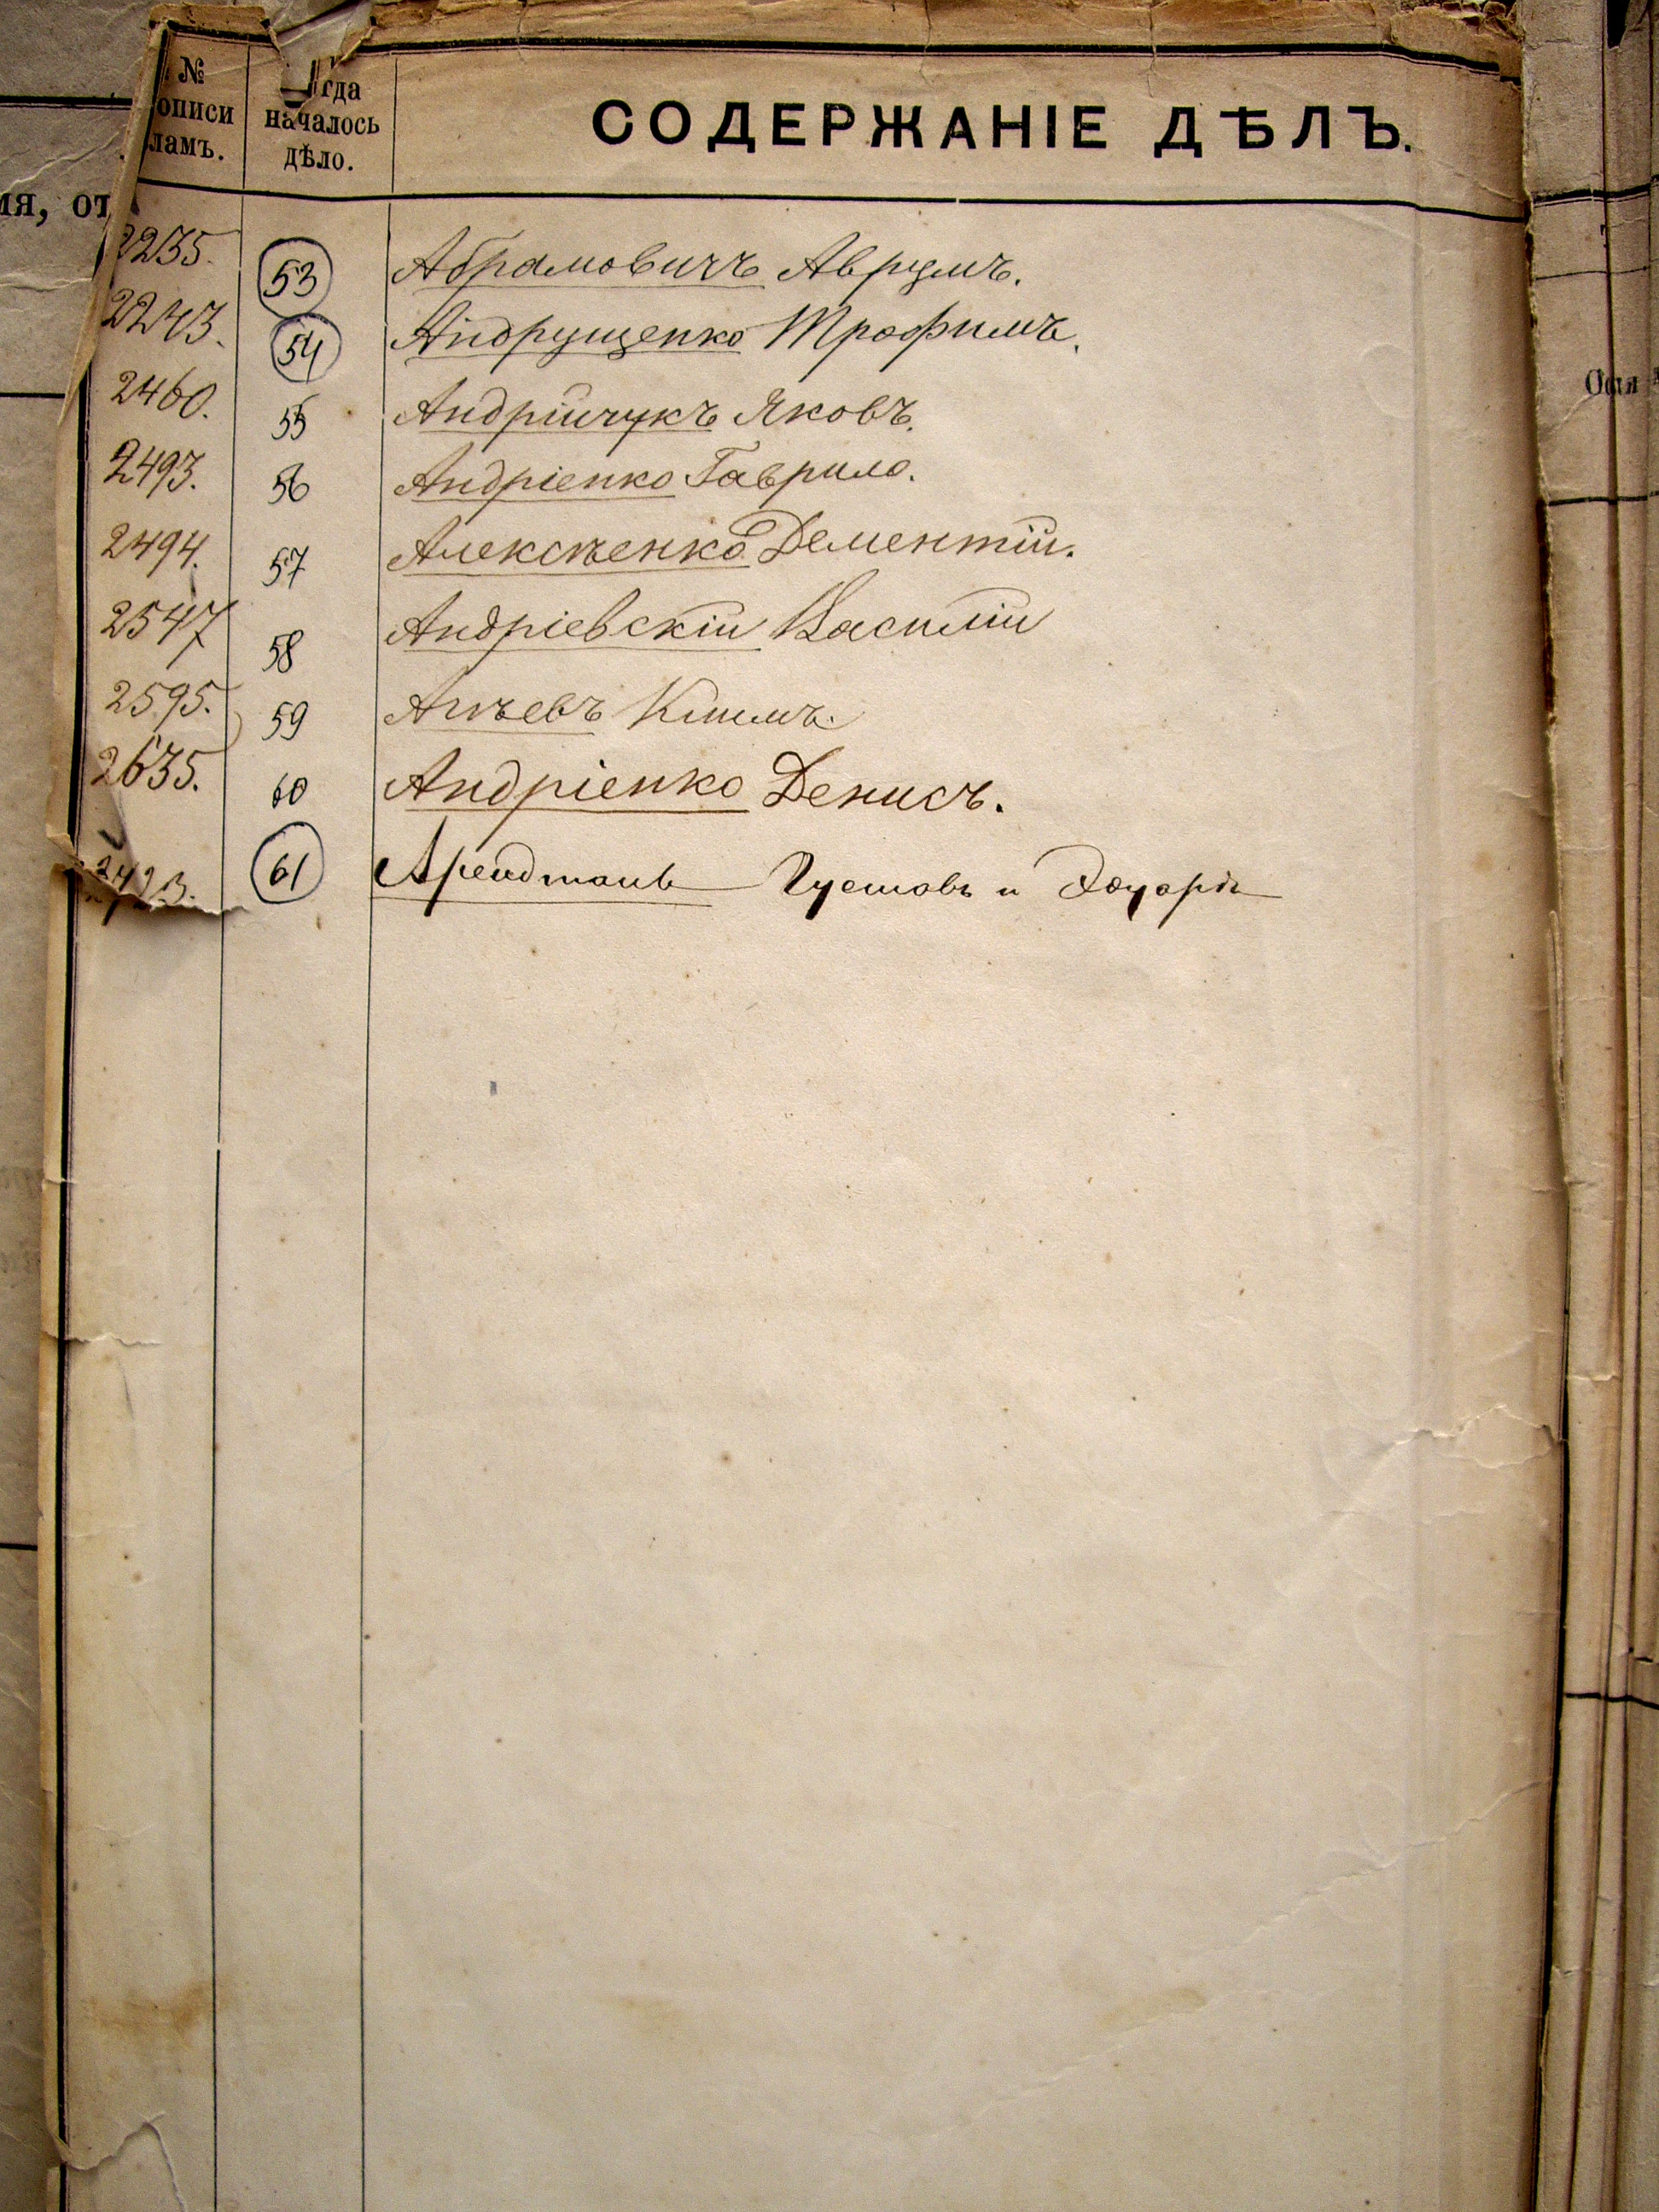 № описи ламъ.
гда началось дѣло.
СОДЕРЖАНІЕ ДѢЛЪ.
мя, от
2235. 53 Абрамовичъ Аврумъ.
2243. 54 Андрущенко Трофимъ.
2460. 55 Андрійчукъ Яковъ.
2493. 56 Андріенко Гаврило.
2494. 57 Алексѣенко Дементій.
2547 58 Андріевскій Василій
2595. 59 Агѣевъ Климъ.
2635. 60 Андріенко Денисъ.
2423. 61 Арендтанъ Густавъ и Эдуардъ